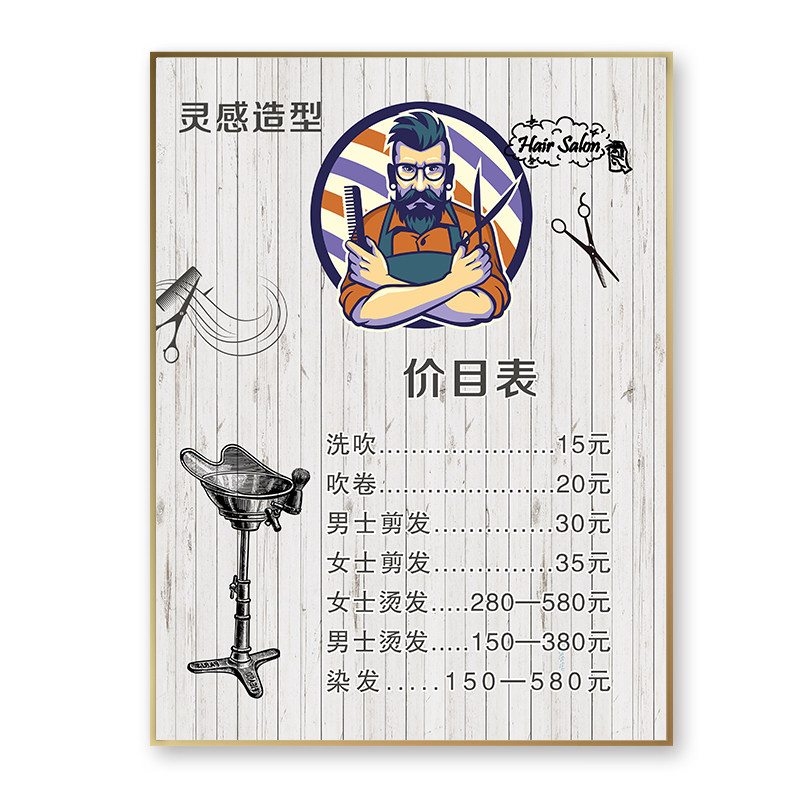 灵感造型
Hair Salon
价目表
洗吹......................15元
吹卷......................20元
男士剪发..............30元
女士剪发..............35元
女士烫发.....280—580元
男士烫发.....150—380元
染发.....150—580元